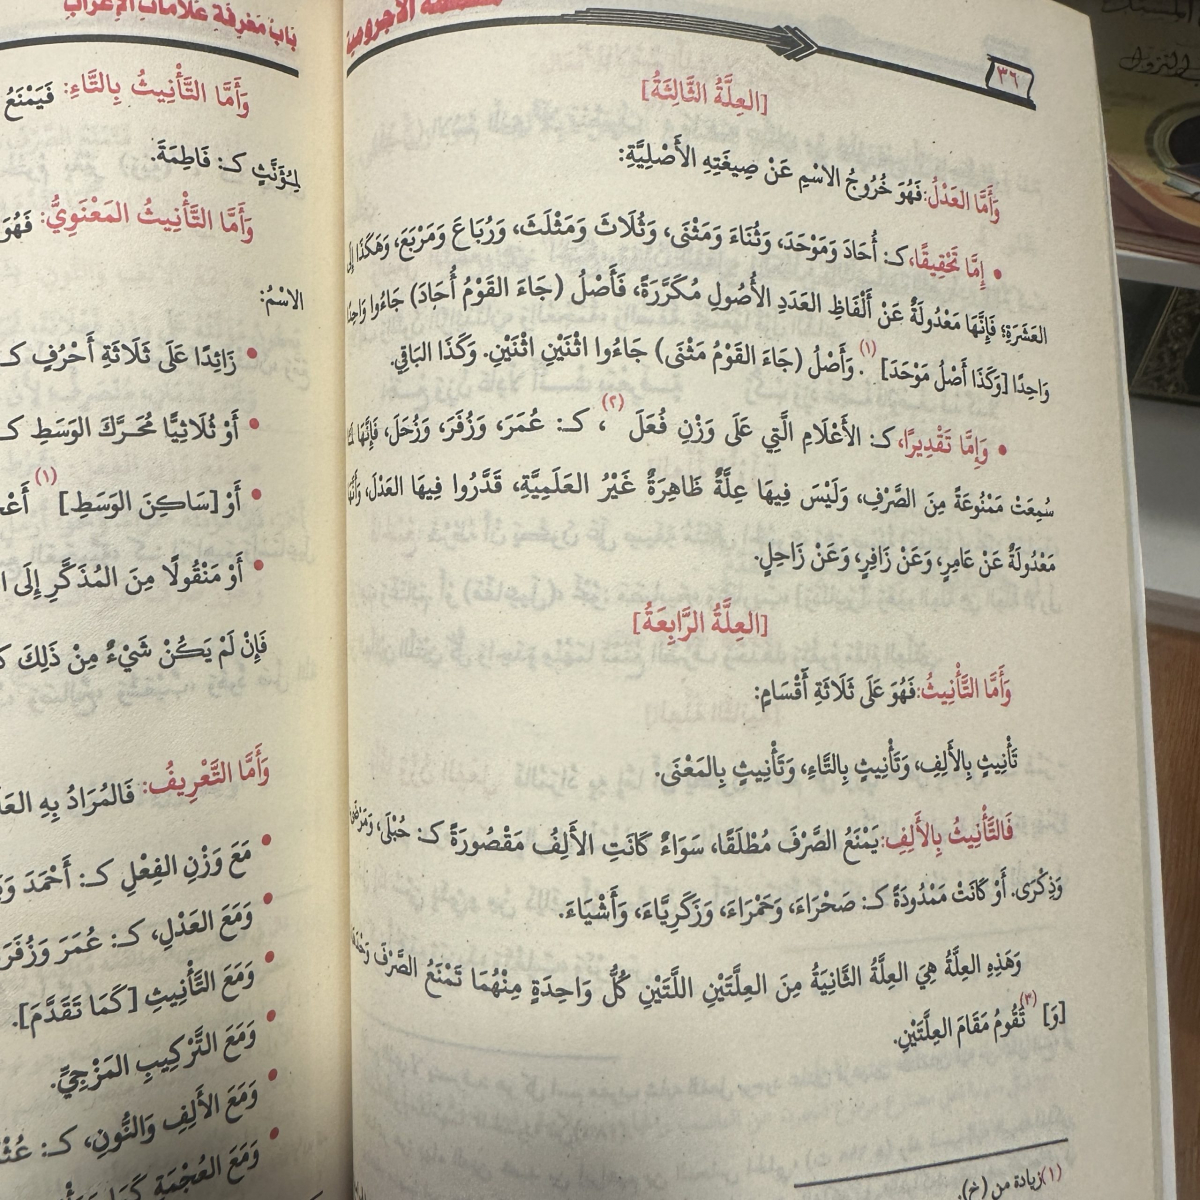 متممة الآجرومية
٣٦
[العِلَّةُ الثَّالِثَةُ]
وَأَمَّا العَدْلُ: فَهُوَ خُرُوجُ الاسْمِ عَنْ صِيغَتِهِ الأَصْلِيَّةِ:
• إِمَّا تَحْقِيقًا، كـ: أُحَادَ وَمَوْحَدَ، وَثُنَاءَ وَمَثْنَى، وَثُلَاثَ وَمَثْلَثَ، وَرُبَاعَ وَمَرْبَعَ، وَهَكَذَا إِلَى
العَشَرَةِ؛ فَإِنَّهَا مَعْدُولَةٌ عَنْ أَلْفَاظِ العَدَدِ الأُصُولِ مُكَرَّرَةً، فَأَصْلُ (جَاءَ القَوْمُ أُحَادَ) جَاءُوا وَاحِدًا
وَاحِدًا [وَكَذَا أَصْلُ مَوْحَدَ] (١). وَأَصْلُ (جَاءَ القَوْمُ مَثْنَى) جَاءُوا اثْنَيْنِ اثْنَيْنِ. وَكَذَا البَاقِي.
• وَإِمَّا تَقْدِيرًا، كـ: الأَعْلَامِ الَّتِي عَلَى وَزْنِ فُعَلَ (٢)، كـ: عُمَرَ، وَزُفَرَ، وَزُحَلَ، فَإِنَّهَا
سُمِعَتْ مَمْنُوعَةً مِنَ الصَّرْفِ، وَلَيْسَ فِيهَا عِلَّةٌ ظَاهِرَةٌ غَيْرُ العَلَمِيَّةِ، قَدَّرُوا فِيهَا العَدْلَ، وَأَنَّهَا
مَعْدُولَةٌ عَنْ عَامِرٍ، وَعَنْ زَافِرٍ، وَعَنْ زَاحِلٍ.
[العِلَّةُ الرَّابِعَةُ]
وَأَمَّا التَّأْنِيثُ: فَهُوَ عَلَى ثَلَاثَةِ أَقْسَامٍ:
تَأْنِيثٍ بِالأَلِفِ، وَتَأْنِيثٍ بِالتَّاءِ، وَتَأْنِيثٍ بِالمَعْنَى.
فَالتَّأْنِيثُ بِالأَلِفِ: يَمْنَعُ الصَّرْفَ مُطْلَقًا، سَوَاءٌ كَانَتِ الأَلِفُ مَقْصُورَةً كـ: حُبْلَى، وَمَرْضَى
وَذِكْرَى. أَوْ كَانَتْ مَمْدُودَةً كـ: صَحْرَاءَ، وَحَمْرَاءَ، وَزَكَرِيَّاءَ، وَأَشْيَاءَ.
وَهَذِهِ العِلَّةُ هِيَ العِلَّةُ الثَّانِيَةُ مِنَ العِلَّتَيْنِ اللَّتَيْنِ كُلُّ وَاحِدَةٍ مِنْهُمَا تَمْنَعُ الصَّرْفَ وَحْدَهَا
[وَ] (٣) تَقُومُ مَقَامَ العِلَّتَيْنِ.
(١) زيادة من (خ).
بَابُ مَعْرِفَةِ عَلَامَاتِ الإِعْرَابِ
وَأَمَّا التَّأْنِيثُ بِالتَّاءِ: فَيَمْنَعُ
لِمُؤَنَّثٍ كـ: فَاطِمَةَ.
وَأَمَّا التَّأْنِيثُ المَعْنَوِيُّ: فَهُوَ
الاسْمُ:
• زَائِدًا عَلَى ثَلَاثَةِ أَحْرُفٍ كـ
• أَوْ ثُلَاثِيًّا مُحَرَّكَ الوَسَطِ كـ
• أَوْ [سَاكِنَ الوَسَطِ] (١)
• أَوْ مَنْقُولًا مِنَ المُذَكَّرِ إِلَى
فَإِنْ لَمْ يَكُنْ شَيْءٌ مِنْ ذَلِكَ
وَأَمَّا التَّعْرِيفُ: فَالمُرَادُ بِهِ
• مَعَ وَزْنِ الفِعْلِ كـ: أَحْمَدَ
• وَمَعَ العَدْلِ، كـ: عُمَرَ وَزُفَرَ
• وَمَعَ التَّأْنِيثِ [كَمَا تَقَدَّمَ].
• وَمَعَ التَّرْكِيبِ المَزْجِيِّ.
• وَمَعَ الأَلِفِ وَالنُّونِ، كـ:
• وَمَعَ العُجْمَةِ